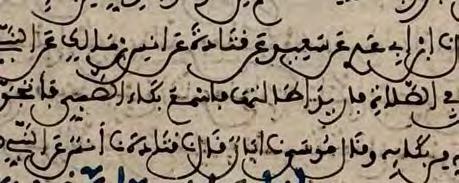 ابن ابي عدي عن سعيد عن قتادة عن انس بن مالك عن النبي
في الصلاة فاريد اطالتها فاسمع بكاء الصبي فاتجو
من بكايه وقال موسى نا ابان قال نا قتادة نا انس عن النبي